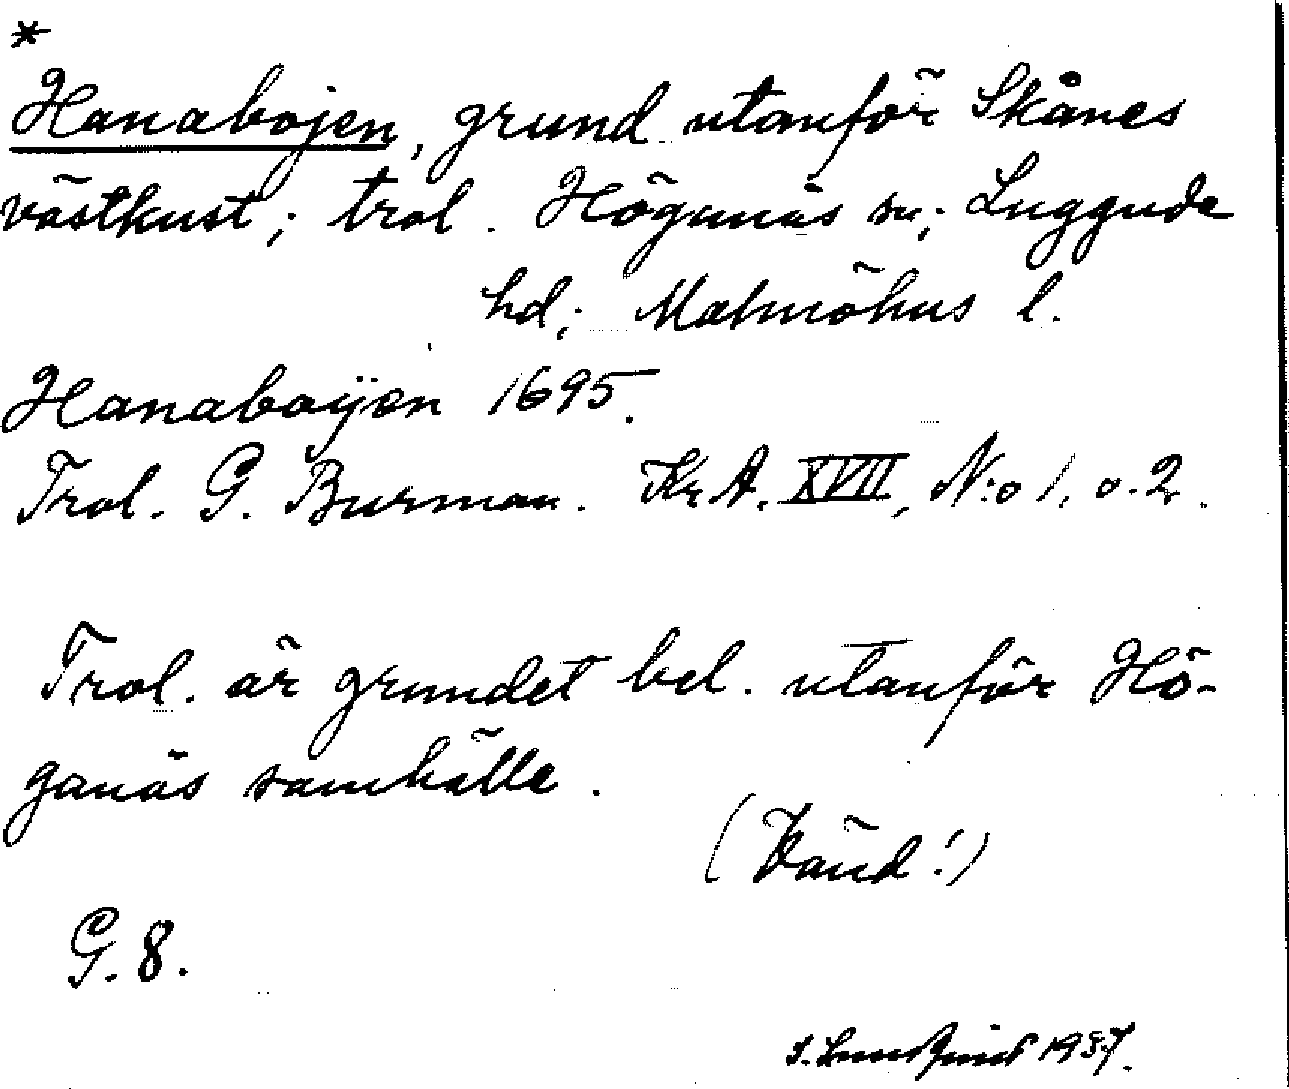 *
Hanabojen, grund utanför Skånes
västkust; trol. Höganäs sn; Luggude
hd; Malmöhus l.
Hanaboÿen 1695.
Trol. G. Burman. Kr.A. XVII, N:o 1. o. 2.
Trol. är grundet bel. utanför Hö-
ganäs samhälle.
(Vänd!)
G. 8.
1937.